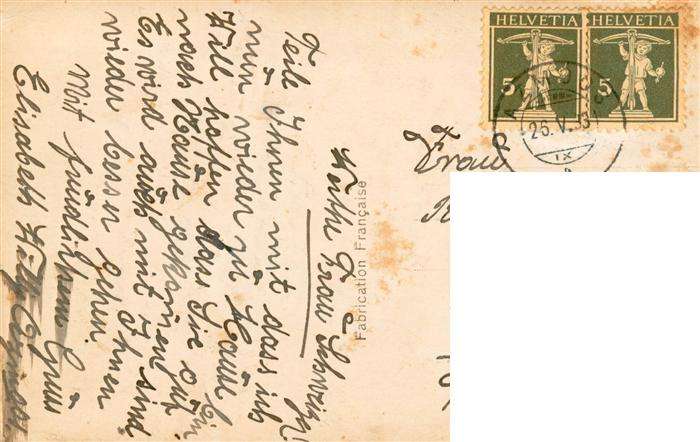 HELVETIA HELVETIA
5 5
26.V.
IX
Frau
Fabrication Française
Werthe Frau
Teile Ihnen mit dass ich
nun wieder zu Hause bin
Will hoffen dass Sie gut
nach Hause gekommen sind
Es wird auch mit Ihnen
wieder besser gehen.
Mit freundlichem Gruss
Elisabeth